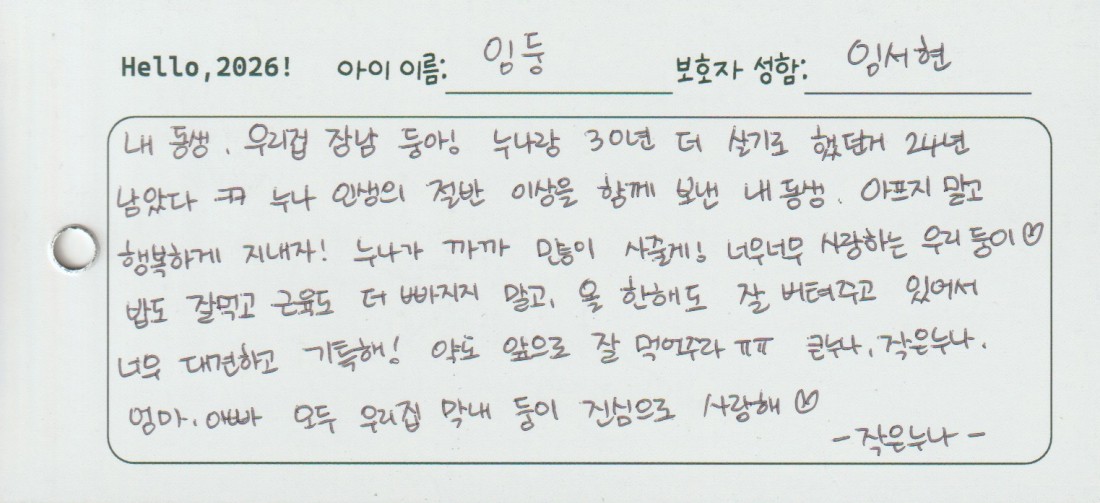 Hello,2026! 아이 이름: 임둥 보호자 성함: 임서현
내 동생. 우리집 장남 둥아! 누나랑 30년 더 살기로 했던거 24년
남았다 ㅋㅋ 누나 인생의 절반 이상을 함께 보낸 내 동생. 아프지 말고
행복하게 지내자! 누나가 까까 많이 사줄게! 너무너무 사랑하는 우리 둥이♡
밥도 잘먹고 근육도 더 빠지지 말고, 올 한해도 잘 버텨주고 있어서
너무 대견하고 기특해! 약도 앞으로 잘 먹어주라 ㅠㅠ 큰누나, 작은누나,
엄마, 아빠 모두 우리집 막내 둥이 진심으로 사랑해♡
- 작은누나 -